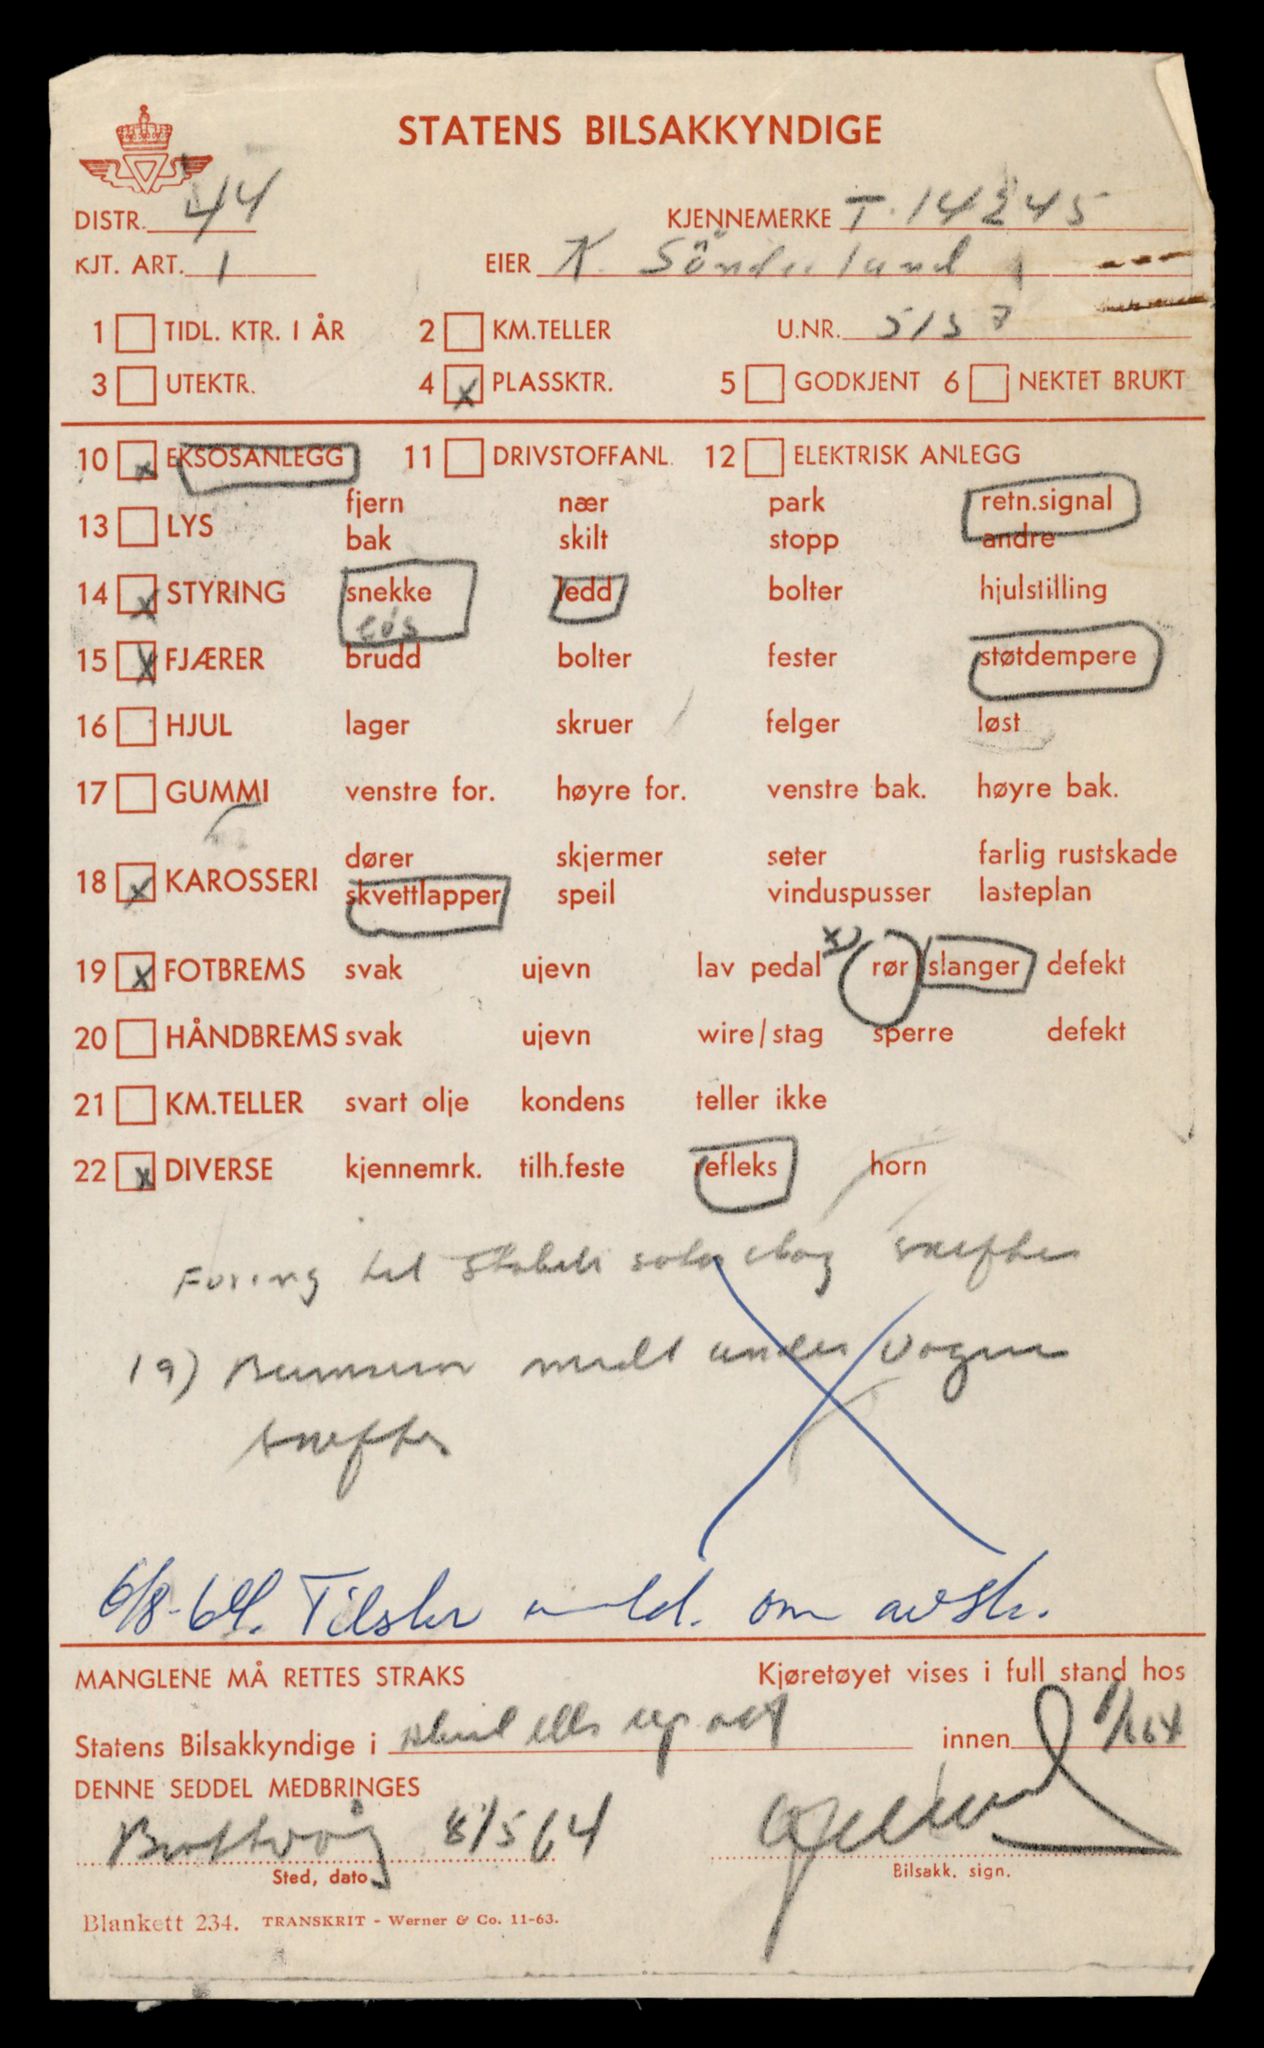 STATENS BILSAKKYNDIGE
DISTR. 44
KJENNEMERKE T-14245
KJT. ART. 1
EIER K. Sønderland
1 TIDL. KTR. I ÅR 2 KM.TELLER U.NR. 5157
3 UTEKTR. 4 x PLASSKTR. 5 GODKJENT 6 NEKTET BRUKT
10 x EKSOSANLEGG 11 DRIVSTOFFANL. 12 ELEKTRISK ANLEGG
13 LYS fjern nær park retn.signal
bak skilt stopp andre
14 x STYRING snekke ledd bolter hjulstilling
løs
15 x FJÆRER brudd bolter fester støtdempere
16 HJUL lager skruer felger løst
17 GUMMI venstre for. høyre for. venstre bak. høyre bak.
18 x KAROSSERI dører skjermer seter farlig rustskade
skvettlapper speil vinduspusser lasteplan
19 x FOTBREMS svak ujevn lav pedal x) rør slanger defekt
20 HÅNDBREMS svak ujevn wire/stag sperre defekt
21 KM.TELLER svart olje kondens teller ikke
22 x DIVERSE kjennemrk. tilh.feste refleks horn
Foring til skiftes
19) under vogna
skiftes
6/8-64. Tilskr. om avsk.
MANGLENE MÅ RETTES STRAKS Kjøretøyet vises i full stand hos
Statens Bilsakkyndige i innen 8/6 64
DENNE SEDDEL MEDBRINGES
Brattvåg 8/5 64
Sted, dato Bilsakk. sign.
Blankett 234. TRANSKRIT - Werner & Co. 11-63.